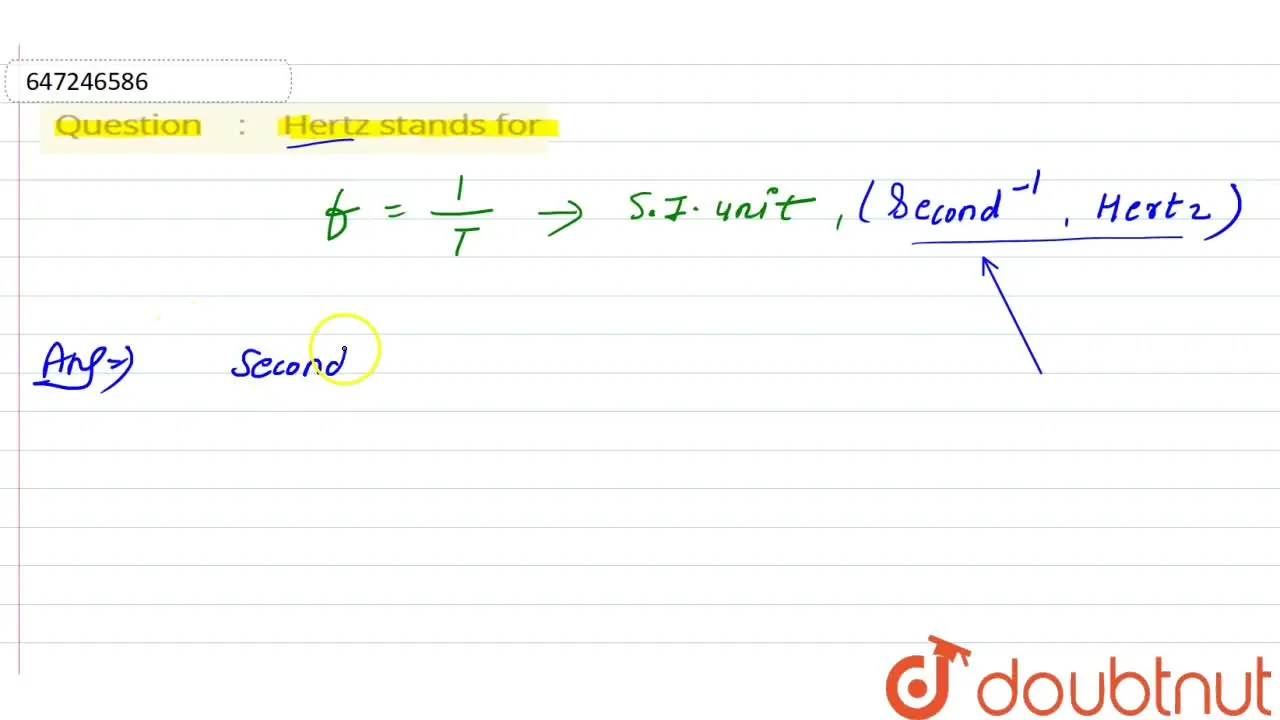 647246586
Question : Hertz stands for
f = 1/T → S.I. unit, (Second⁻¹, Hertz)
Ans ⇒ Second
doubtnut